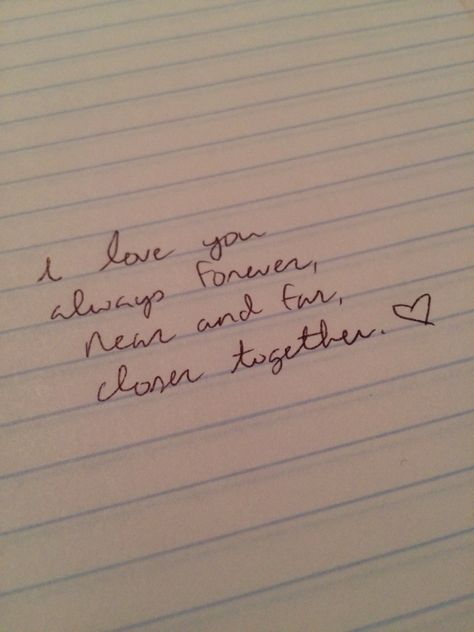 i love you
always forever,
near and far,
closer together. ♡